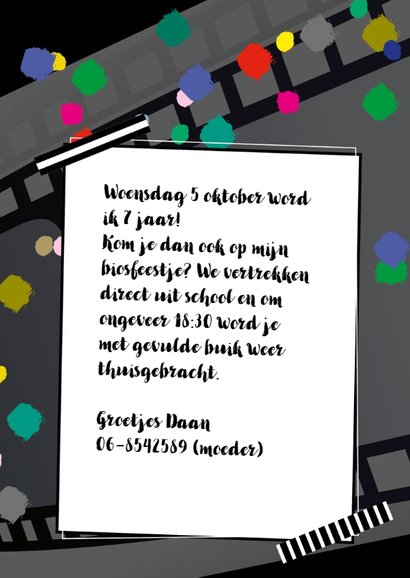 Woensdag 5 oktober word
ik 7 jaar!
Kom je dan ook op mijn
biosfeestje? We vertrekken
direct uit school en om
ongeveer 18:30 word je
met gevulde buik weer
thuisgebracht.
Groetjes Daan
06-8542589 (moeder)